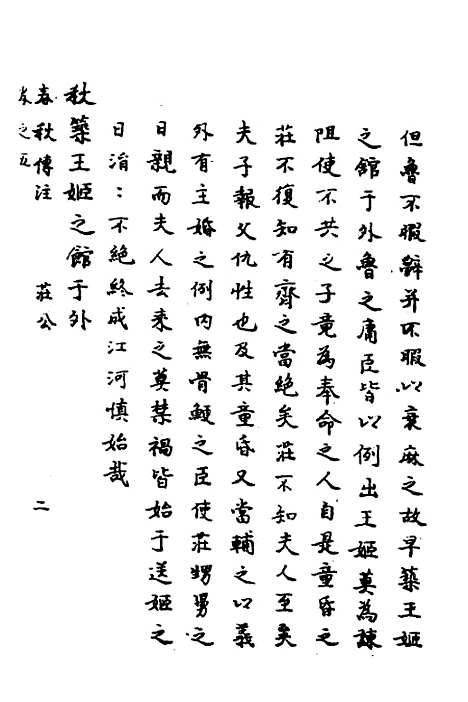 但魯不暇辭并不暇以衰麻之故早築王姬
之館于外魯之庸臣皆以例出王姬莫為諫
阻使不共之子竟為奉命之人自是童昏之
莊不復知有齊之當絕矣莊不知夫人至矣
夫子報父仇性也及其童昏又當輔之以義
外有主婚之例內無骨鯁之臣使莊甥舅之
日親而夫人去來之莫禁禍皆始于送姬之
日涓:不絕終成江河慎始哉
秋築王姬之館于外
春秋傳注 莊公 二
卷之五